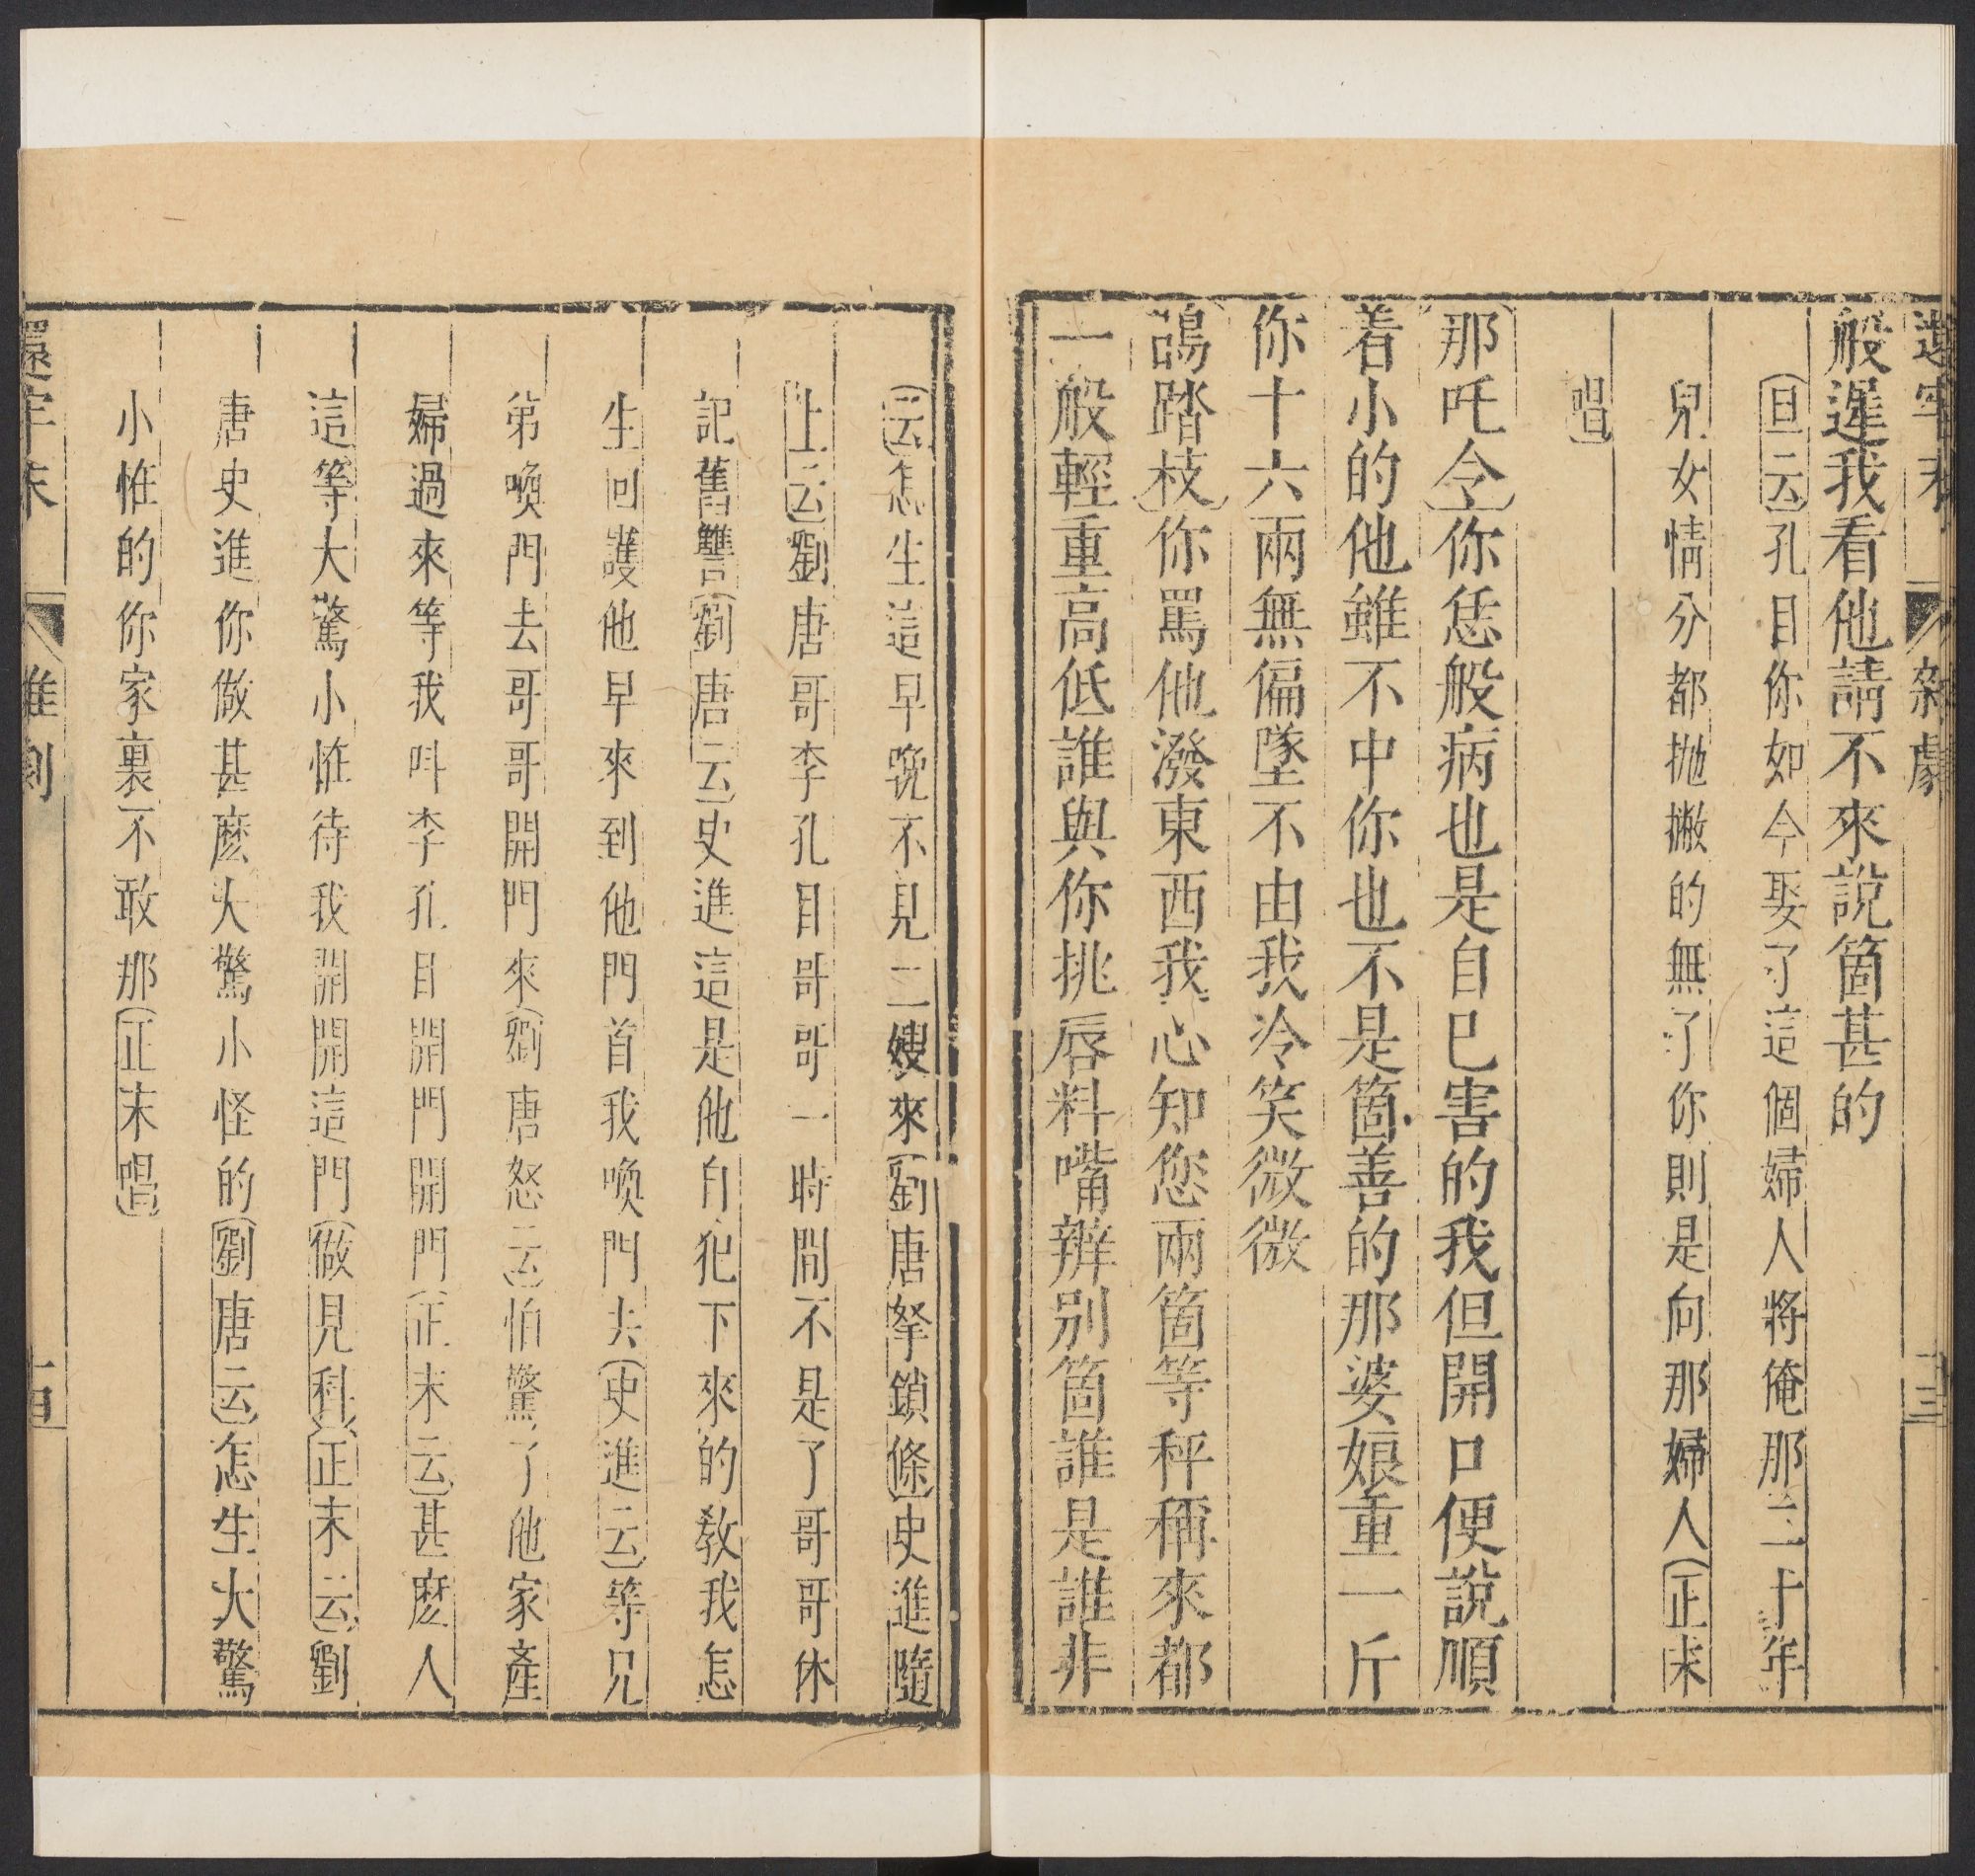 還牢末 雜劇 十三
般遲我看他請不來說箇甚的
旦云孔目你如今娶了這個婦人將俺那二十年
兒女情分都抛撇的無了你則是向那婦人正末
唱
那吒令你恁般病也是自巳害的我但開口便說順
着小的他雖不中你也不是箇善的那婆娘重一斤
你十六兩無偏墜不由我冷笑微微
鵲踏枝你罵他潑東西我心知您兩箇等秤稱來都
一般輕重高低誰與你挑唇料嘴辨別箇誰是誰非
云怎生這早晚不見二嫂來劉唐拏鎖條史進隨
上云劉唐哥李孔目哥哥一時間不是了哥哥休
記舊讐劉唐云史進這是他自犯下來的教我怎
生回護他早來到他門首我喚門去史進云等兄
弟喚門去哥哥開門來劉唐怒云怕驚了他家產
婦過來等我呌李孔目開門開門正末云甚麽人
這等大驚小恠待我開開這門做見科正末云劉
唐史進你做甚麽大驚小怪的劉唐云怎生大驚
小恠的你家裏不敢那正末唱
還牢末 雜劇